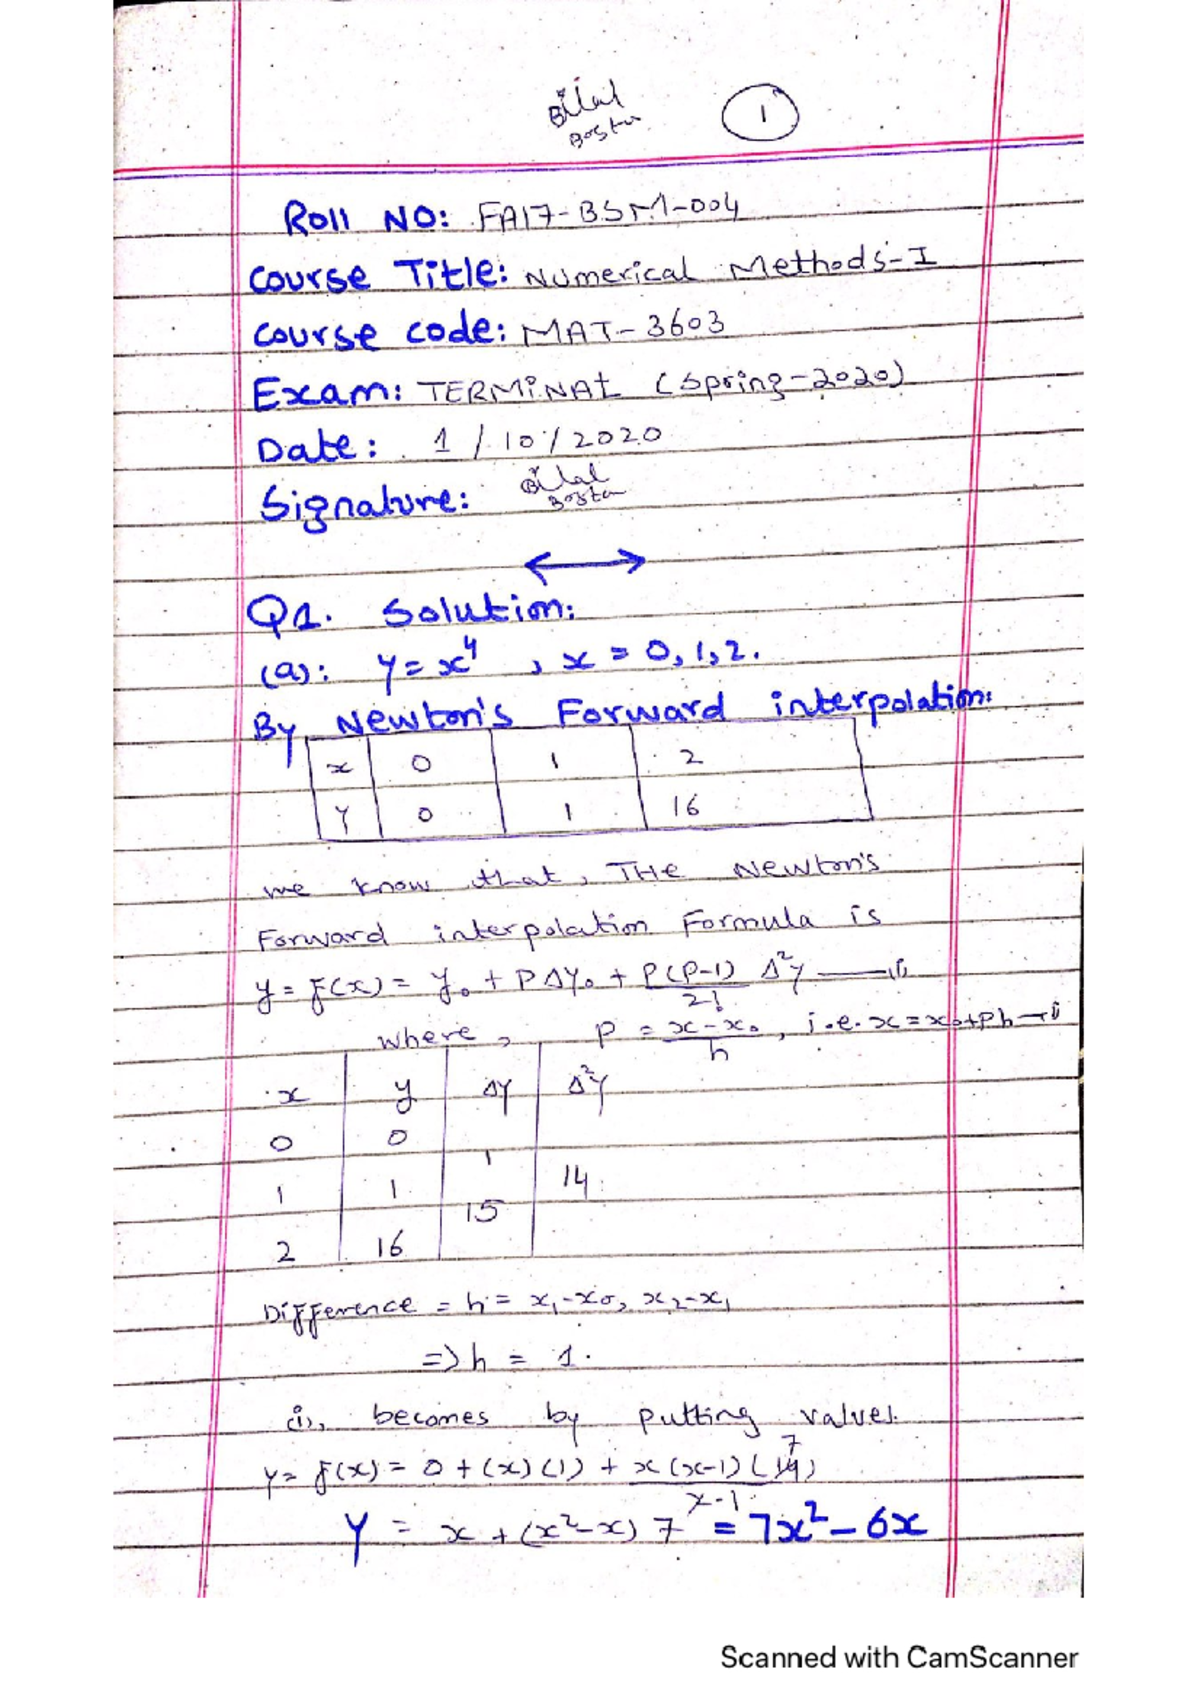 Bilal
1
Roll NO: FA17-BSM-004
Course Title: Numerical Methods-I
Course code: MAT-3603
Exam: TERMINAL (Spring-2020)
Date: 1/10/2020
Signature: Bilal
Q1. Solution:
(a): y=x⁴ , x = 0,1,2.
By Newton's Forward interpolation:
x 0 1 2
Y 0 1 16
we know that, THe Newton's
Forward interpolation Formula is
y = f(x) = y₀ + PΔy₀ + P(P-1)/2! Δ²y —(i)
where, P = x-x₀/h , i.e. x=x₀+Ph →i
x y ΔY Δ²Y
0 0
1
1 1 14
15
2 16
Difference = h = x₁-x₀, x₂-x₁
=> h = 1.
(i), becomes by putting values.
Y= f(x) = 0 + (x)(1) + x(x-1)(14) 7
Y = x + (x²-x) 7 = 7x² - 6x
Scanned with CamScanner